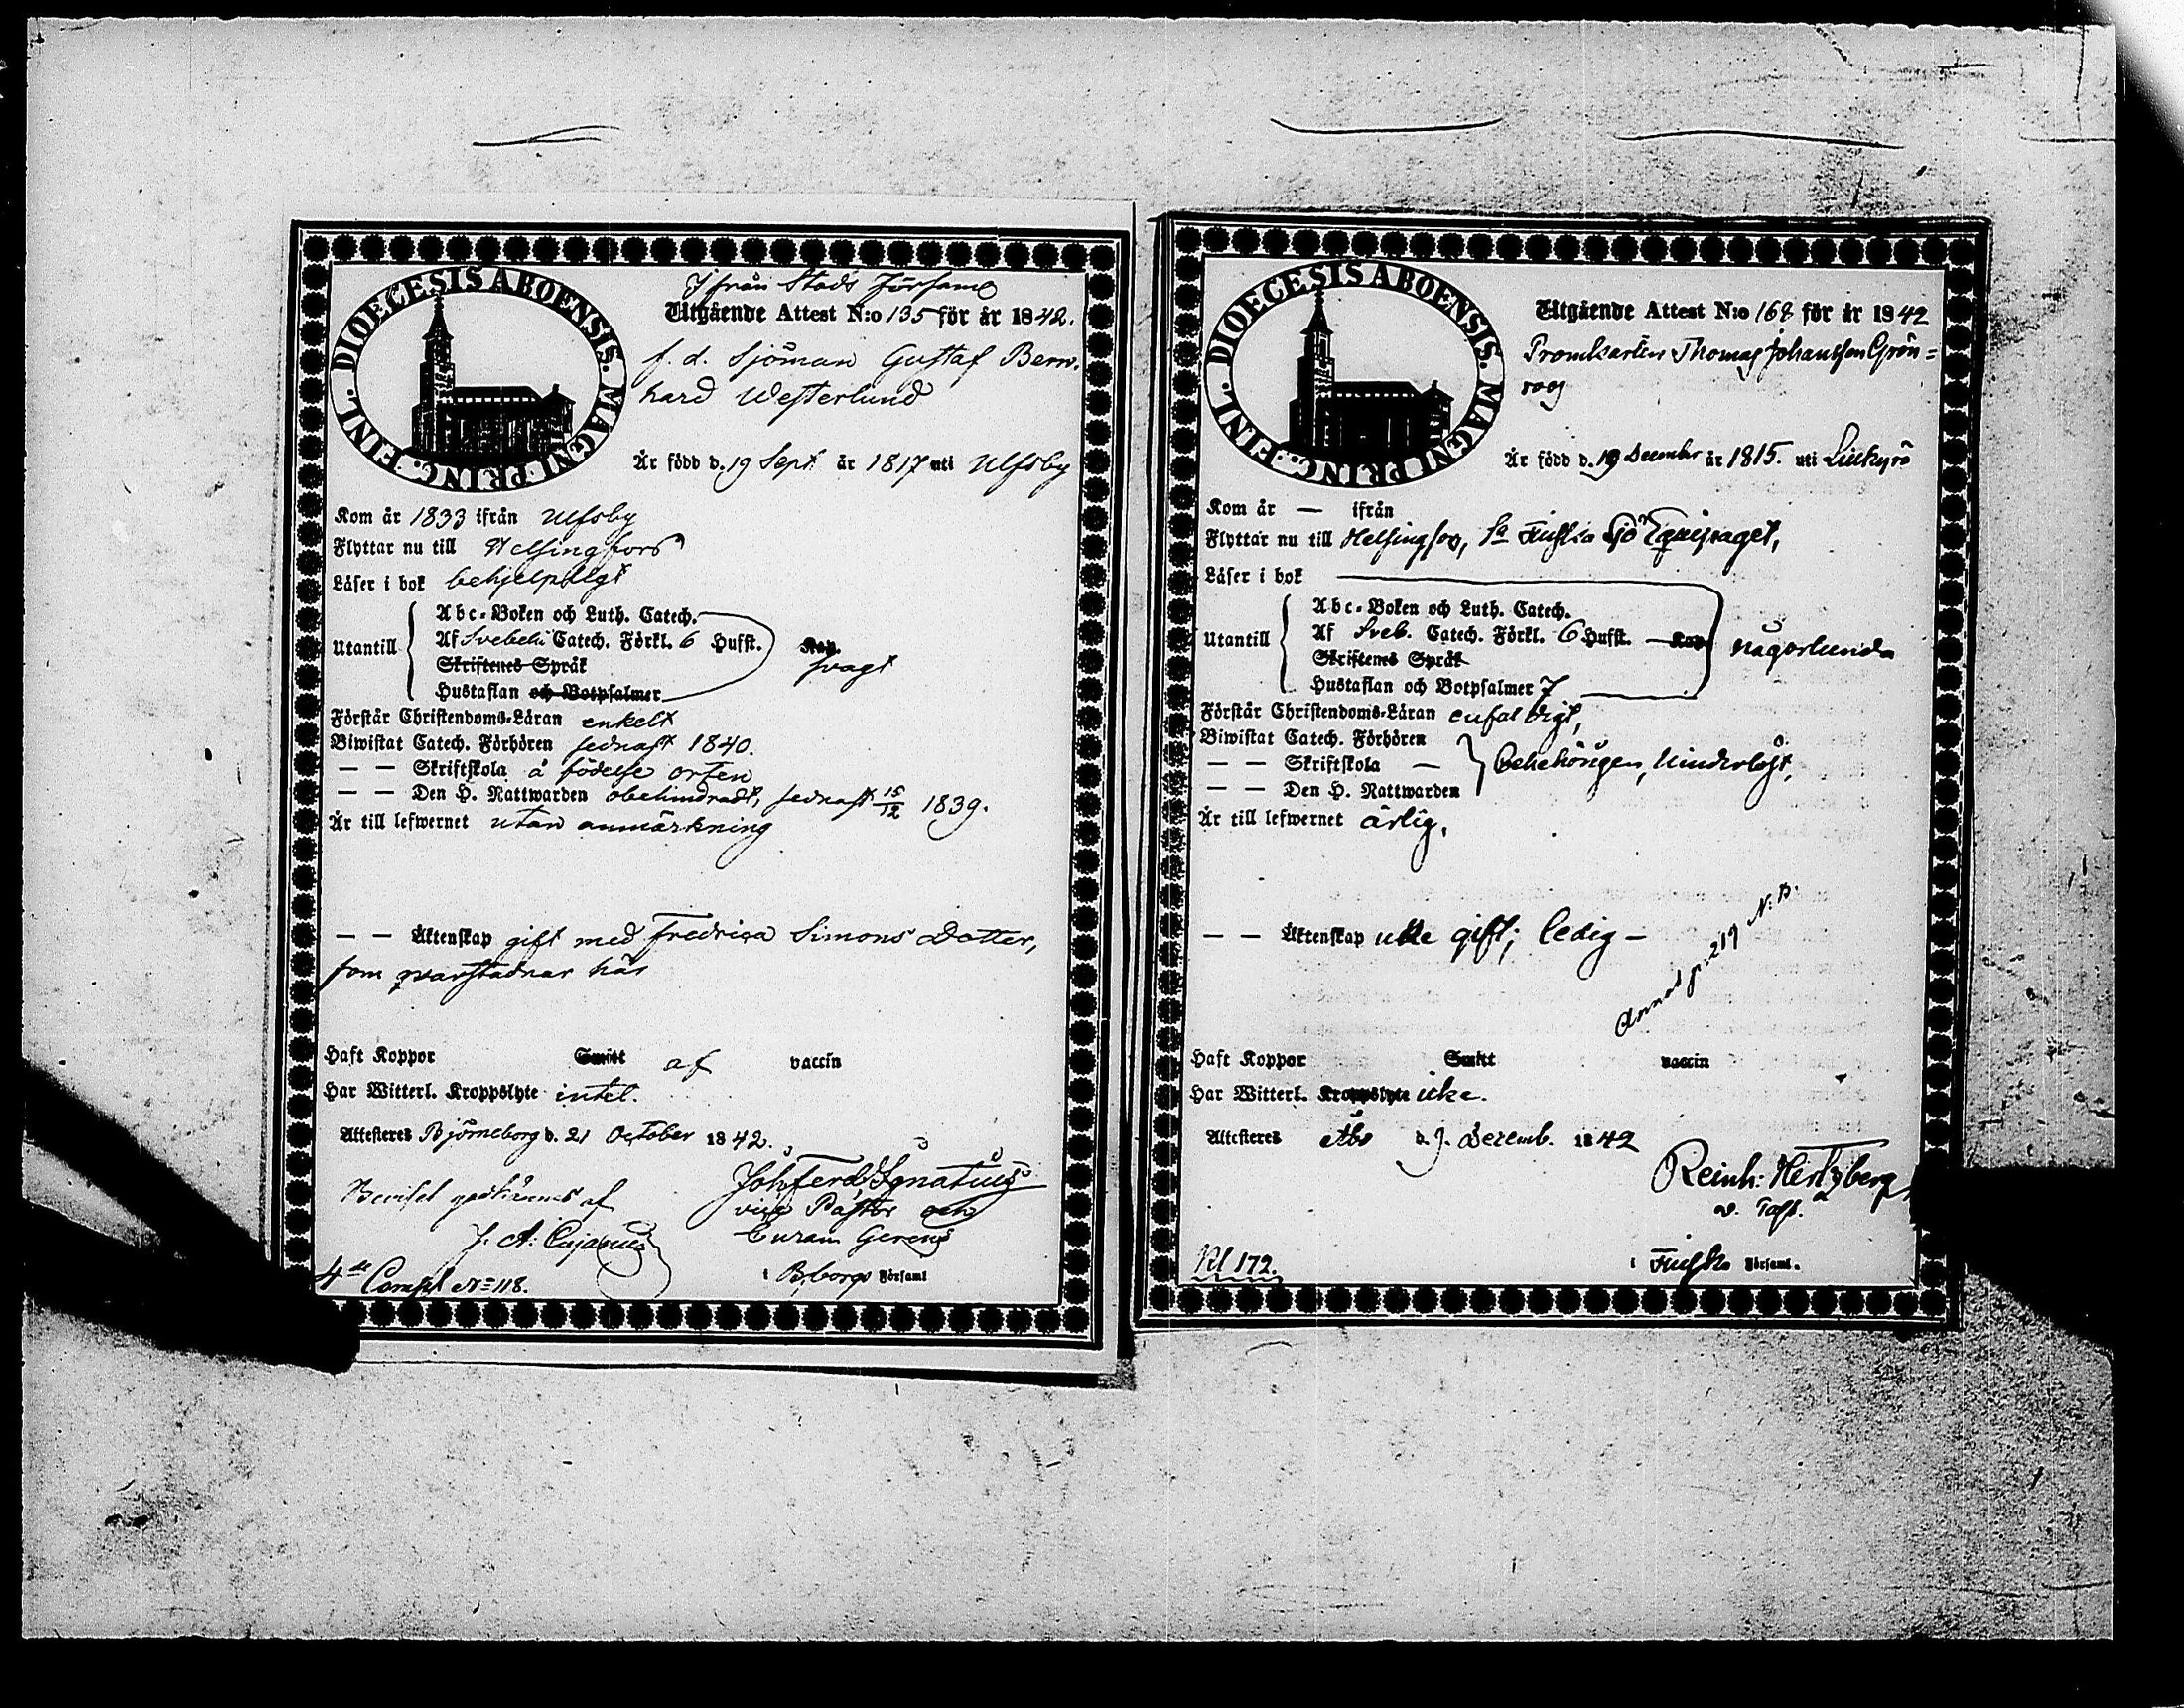 DIOECESIS ABOENSIS. MAGNI PRINC. FINL.
Ifrån Stads Förfaml
Utgående Attest N:o 135 för år 1842.
f. d. Sjöman Gustaf Bern-
hard Westerlund
Är född d. 19 Sept. år 1817 uti Ulfsby
Kom år 1833 ifrån Ulfsby
Flyttar nu till Helsingfors
Läser i bok behjelpligt
Abc-Boken och Luth. Catech.
Utantill Af Svebelii Catech. Förkl. 6 Hufst. Kap. svagt
Skriftenes Språk
Hustaflan och Botpsalmer
Förstår Christendoms-Läran enkelt
Biwistat Catech. Förhören sednast 1840.
— — Skriftskola å födelse orten
— — Den H. Nattwarden obehindradt, sednast 15/12 1839.
Är till lefwernet utan anmärkning
— — Äktenskap gift med Fredrica Simons Dotter,
som qvarstadnar här
Haft Koppor Smitt af vaccin
Har Witterl. Kroppslyte intet.
Attesteres Björneborg d. 21 October 1842.
Beviset godkännes af
Joh Ferd Ignatius
vice Pastor och
J. A. Cajanus
Curam Gerens
4de Comp N=118.
i B:borgs Församl
DIOECESIS ABOENSIS. MAGNI PRINC. FINL.
Utgående Attest N:o 168 för år 1842
Thomas Johansson Grön=
roos
Är född d. 19 December år 1815. uti
Kom år — ifrån
Flyttar nu till Helsingfors, 1a Finska Sjö Equipaget,
Läser i bok
Abc-Boken och Luth. Catech.
Utantill Af Sveb. Catech. Förkl. 6 Hufst. Kap. någorlunda
Skriftenes Språk
Hustaflan och Botpsalmer 7
Förstår Christendoms-Läran enfaldigt,
Biwistat Catech. Förhören
— — Skriftskola —
— — Den H. Nattwarden
Är till lefwernet ärlig,
— — Äktenskap icke gift; ledig —
p. 219 N.B.
Haft Koppor Smitt vaccin
Har Witterl. Kroppslyte icke.
Attesteres Åbo d. 9. Decemb. 1842
Reinh: Hertzberg
v. Past.
Rl 172.
i Finska Församl.